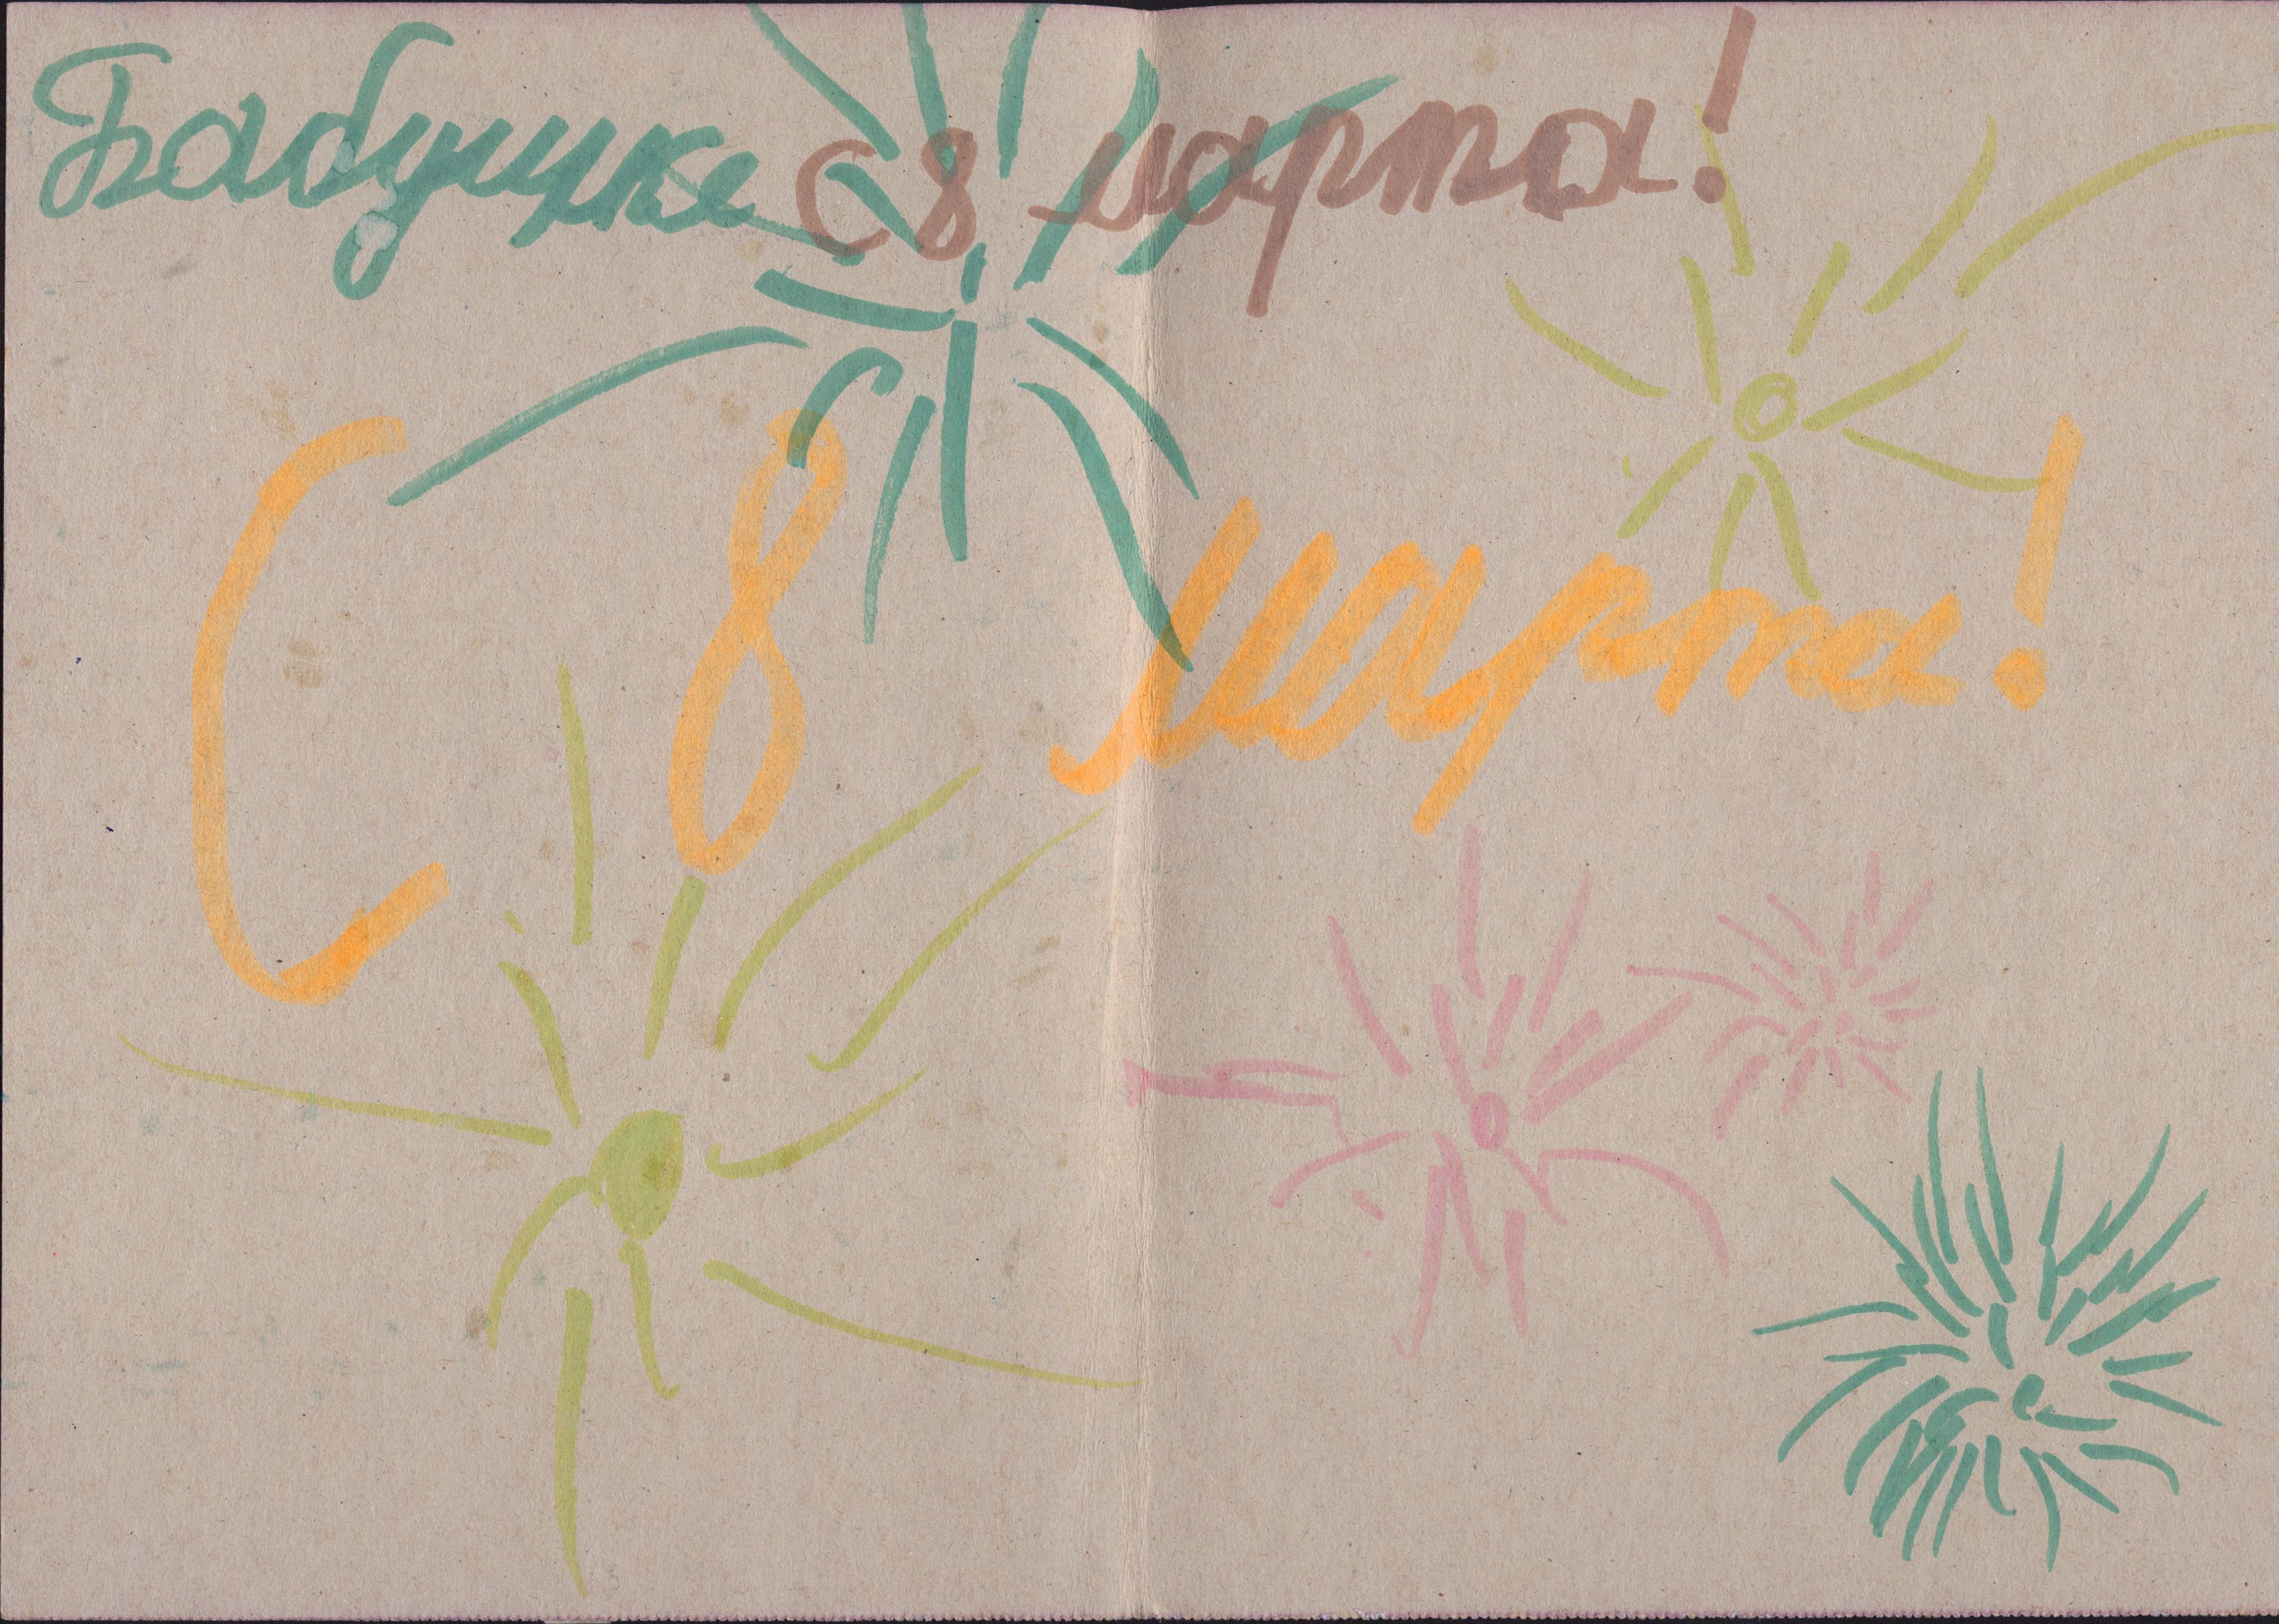 Бабушке с 8 марта!
С 8 марта!